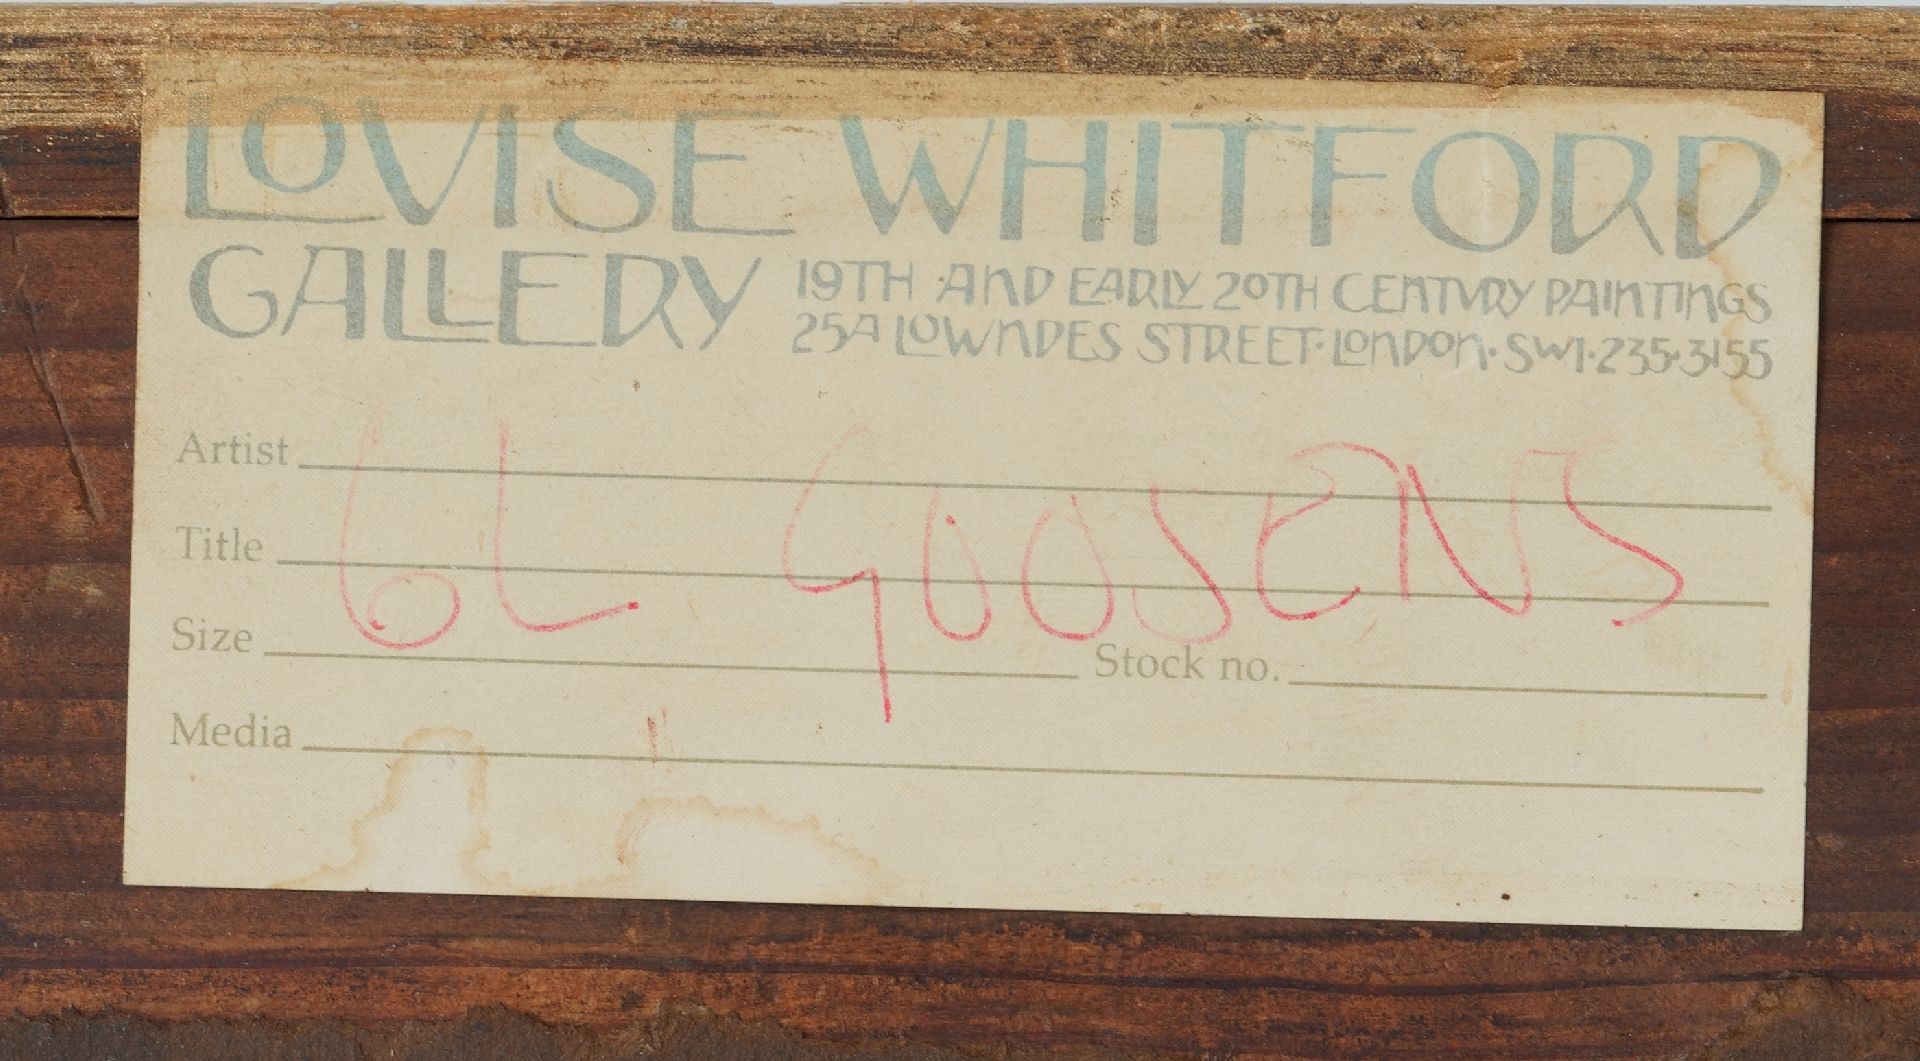 LOVISE WHITFORD
GALLERY
19TH · AND EARLY 20TH CENTVRY PAINTINGS
25A LOWNDES STREET · LONDON · SW1 · 235·3155
Artist
Title
6L GOOSENS
Size Stock no.
Media